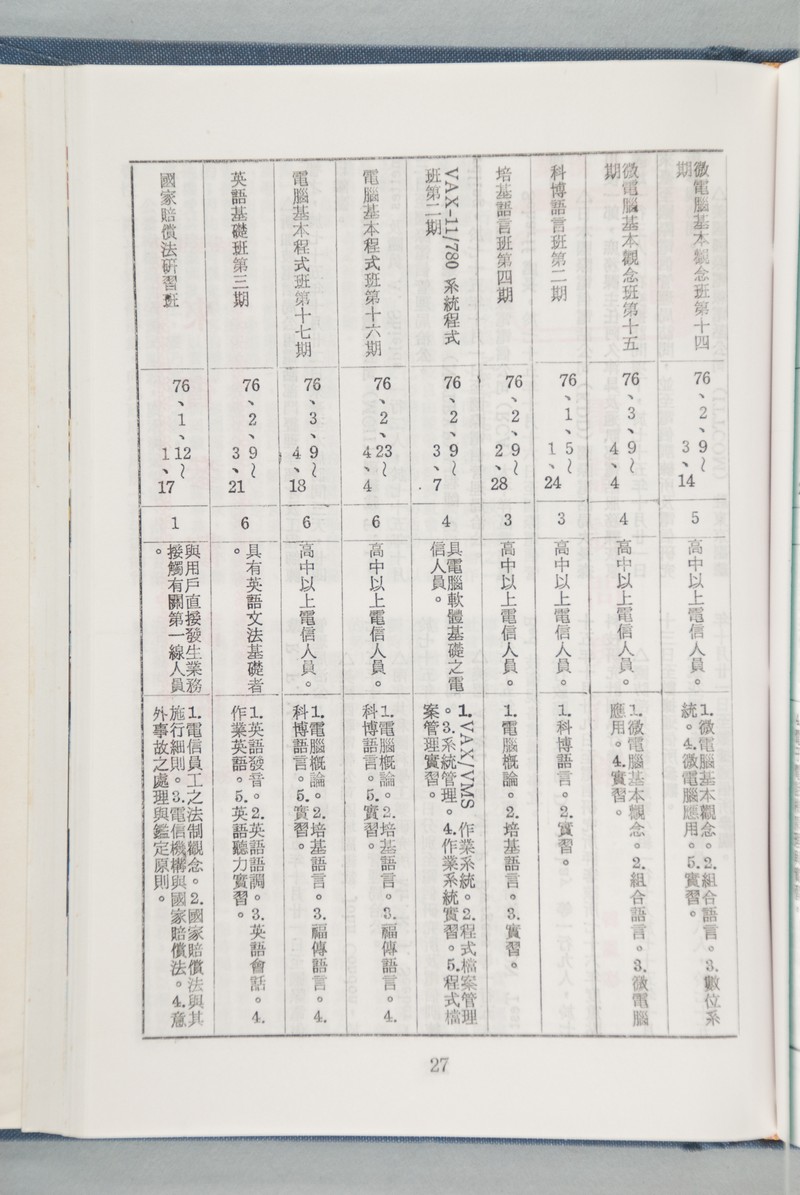 微電腦基本觀念班第十四
期
76、2、9～
3、14
5
高中以上電信人員。
1.微電腦基本觀念。2.組合語言。3.數位系
統。4.微電腦應用。5.實習。
微電腦基本觀念班第十五
期
76、3、9～
4、4
4
高中以上電信人員。
1.微電腦基本觀念。2.組合語言。3.微電腦
應用。4.實習。
科博語言班第二期
76、1、5～
1、24
3
高中以上電信人員。
1.科博語言。2.實習。
培基語言班第四期
76、2、9～
2、28
3
高中以上電信人員。
1.電腦概論。2.培基語言。3.實習。
VAX-11/780 系統程式
班第二期
76、2、9～
3、7
4
具電腦軟體基礎之電
信人員。
1.VAX/VMS 作業系統。2.程式檔案管理
。3.系統管理。4.作業系統實習。5.程式檔
案管理實習。
電腦基本程式班第十六期
76、2、23～
4、4
6
高中以上電信人員。
1.電腦概論。2.培基語言。3.福傳語言。4.
科博語言。5.實習。
電腦基本程式班第十七期
76、3、9～
4、18
6
高中以上電信人員。
1.電腦概論。2.培基語言。3.福傳語言。4.
科博語言。5.實習。
英語基礎班第三期
76、2、9～
3、21
6
具有英語文法基礎者
。
1.英語發音。2.英語語調。3.英語會話。4.
作業英語。5.英語聽力實習。
國家賠償法研習班
76、1、12～
1、17
1
與用戶直接發生業務
接觸有關第一線人員
。
1.電信員工之法制觀念。2.國家賠償法與其
施行細則。3.電信機構與國家賠償法。4.意
外事故之處理與鑑定原則。
27